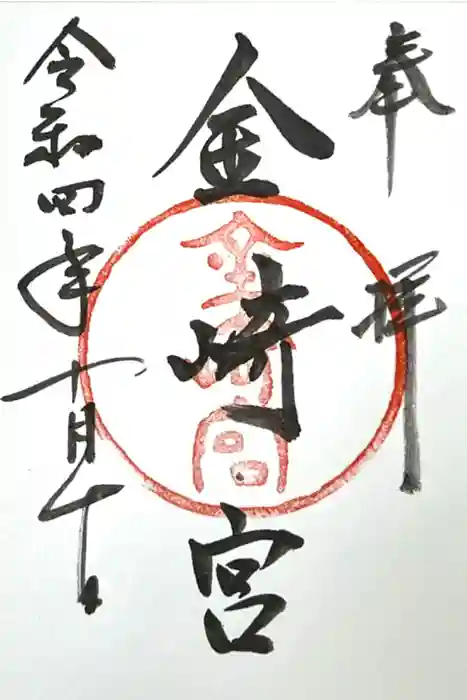 奉拝
金崎宮
金崎宮
令和四年十月十日